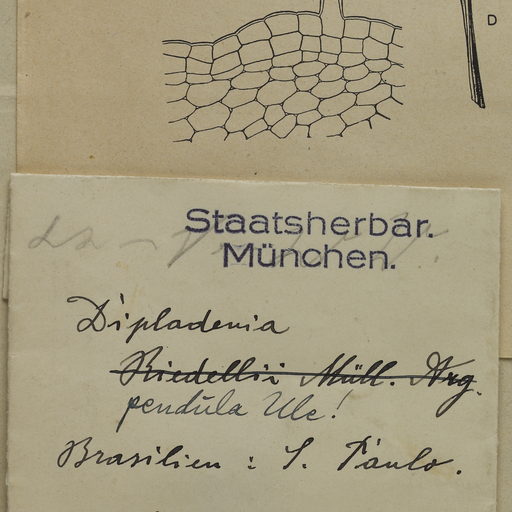 D
Staatsherbar.
München.
Dipladenia
Riedellii Müll. Arg.
pendula Ule!
Brasilien : S. Paulo.